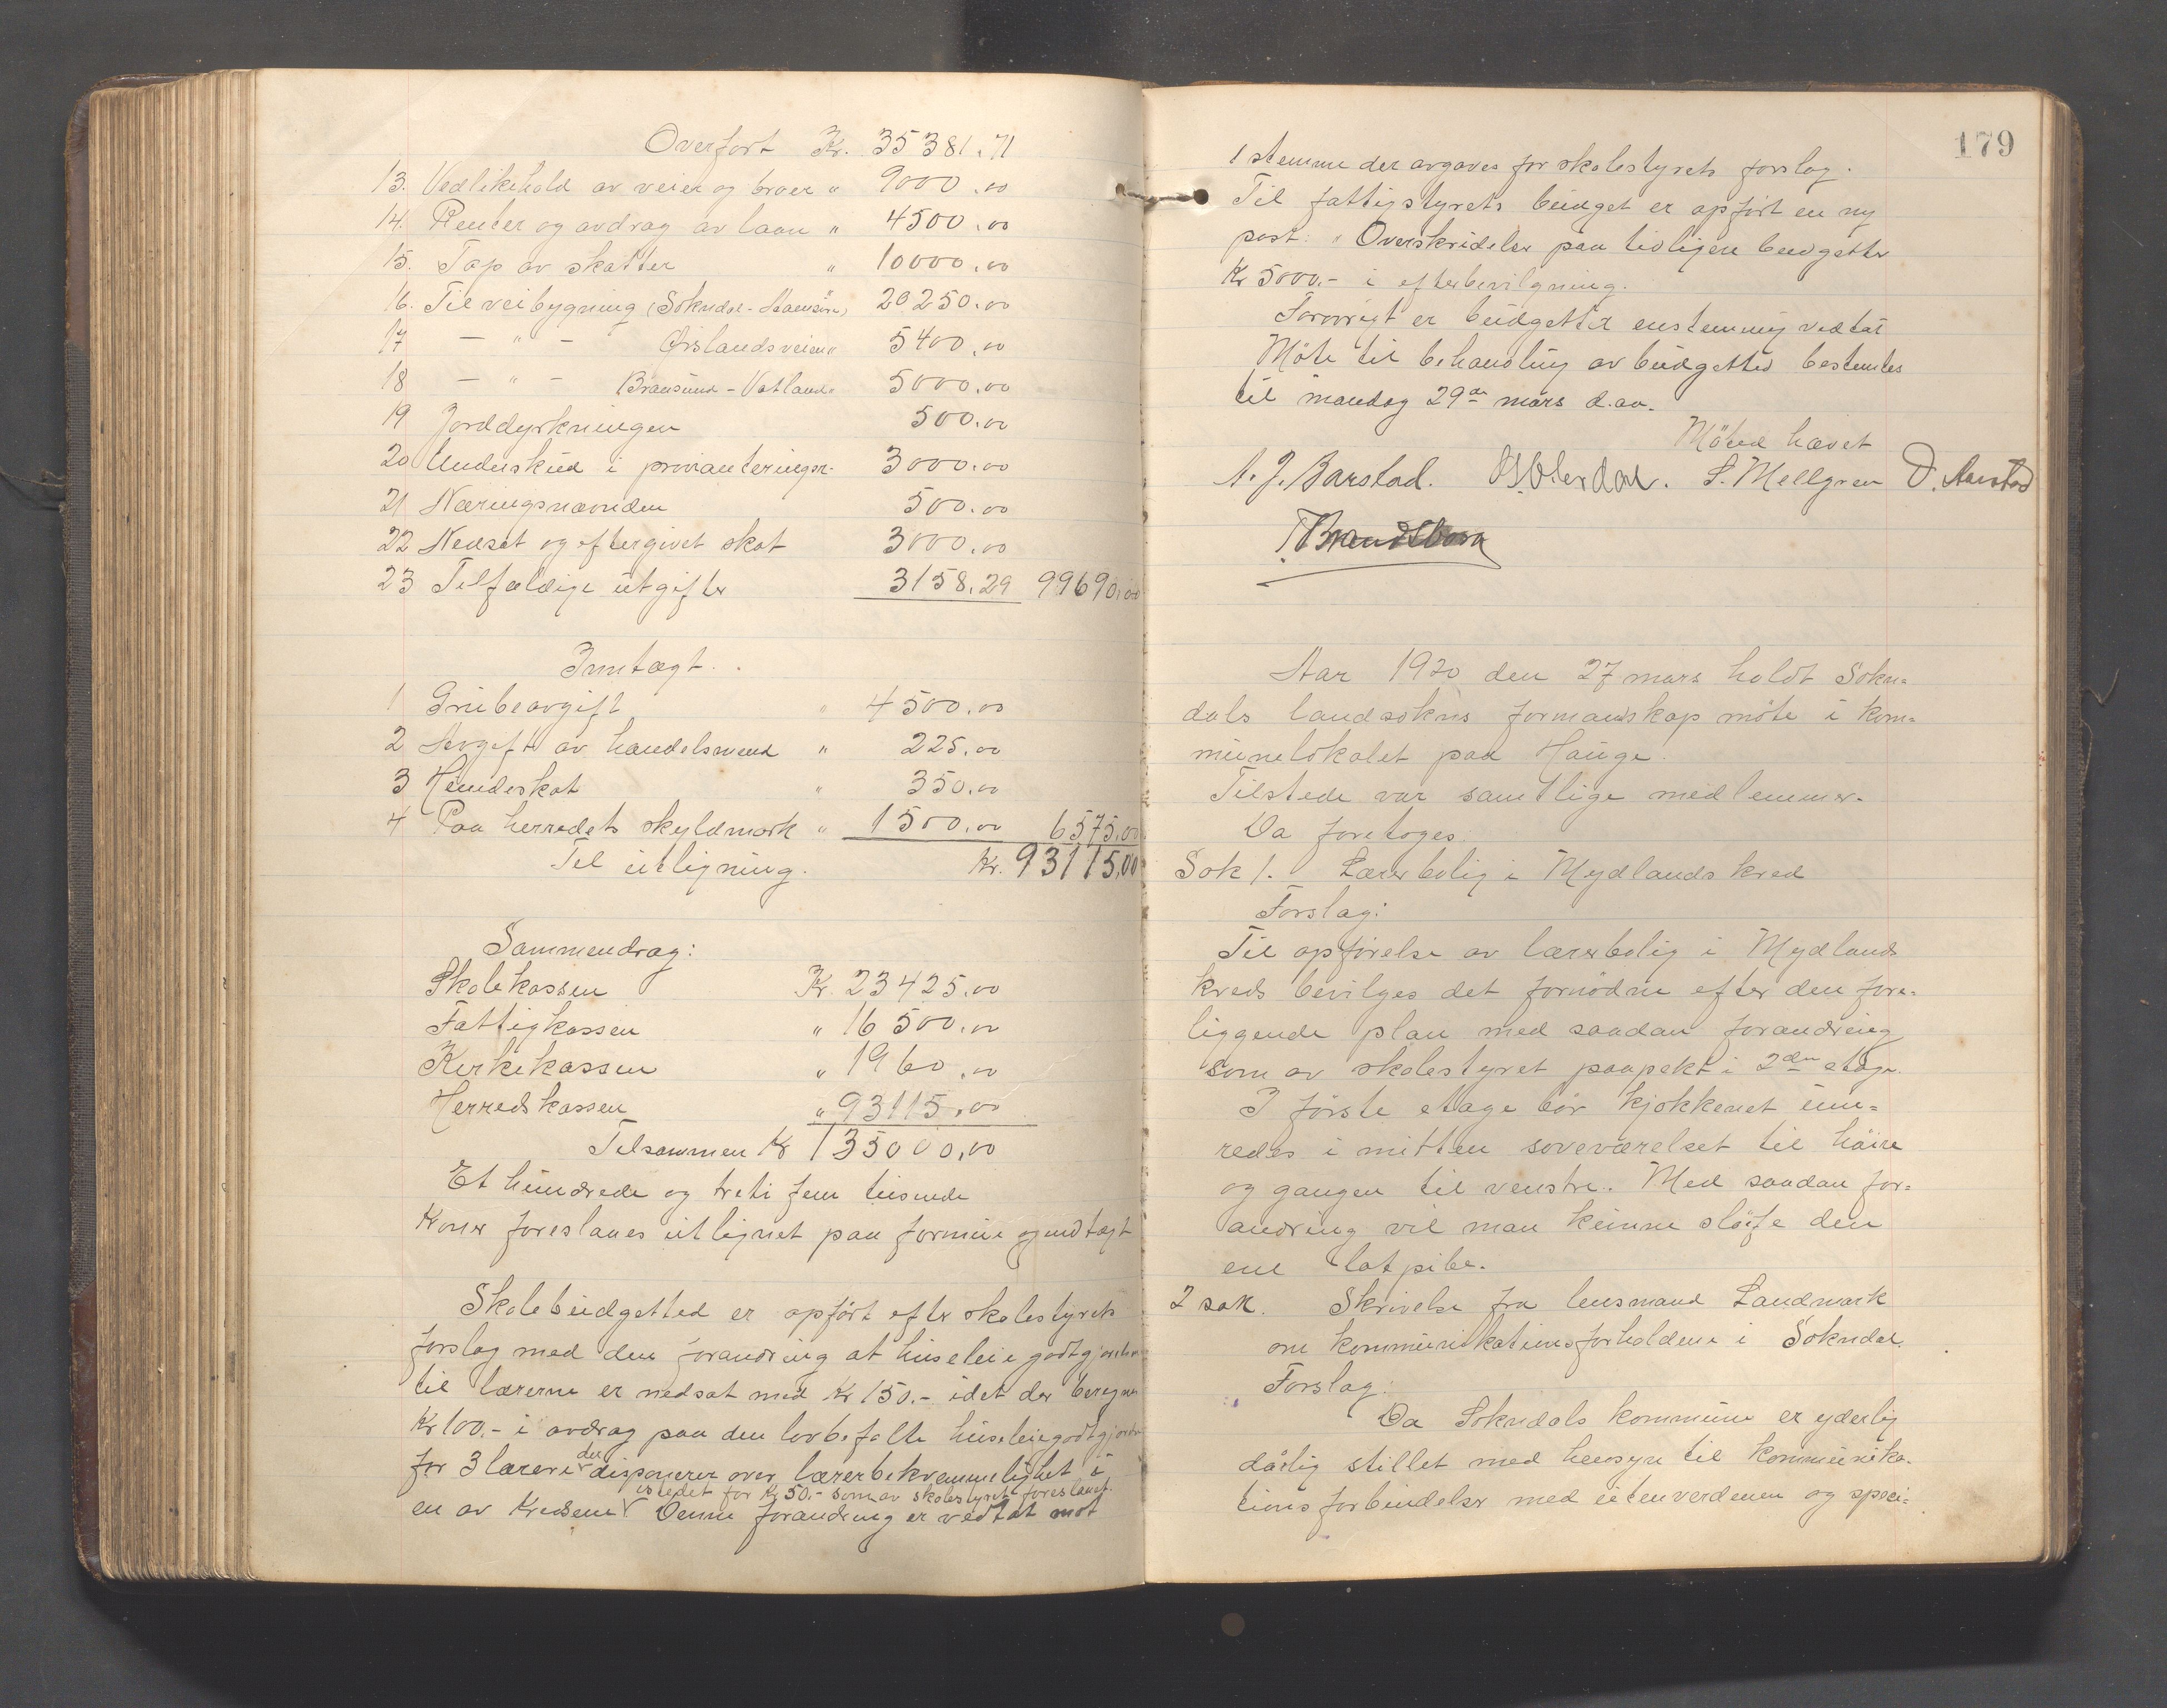 Overført Kr. 35381.71
13. Vedlikehold av veier og broer " 9000.00
14. Renter og avdrag av laan " 4500.00
15. Tap av skatter " 10000.00
16. Til veibygning (Sokndal - ) 20250.00
17 — " — Ørslandsveien " 5400.00
18 — " — - Vatland " 5000.00
19 Jorddyrkningen 500.00
20 Underskud i provianteringsr. 3000.00
21 Næringsnævnden 500.00
22 Nedsat og eftergivet skat 3000.00
23 Tilfældige utgifter 3158.29 99690.00
Inntægt.
1 Grubeavgift " 4500.00
2 Avgift av handelsmænd " 225.00
3 Hundeskat " 350.00
4 Paa herredets skyldmark " 1500.00 6575.00
Til utligning. Kr. 93115,00
Sammendrag:
Skolekassen Kr. 23425.00
Fattigkassen " 16500.00
Kirkekassen " 1960.00
Herredskassen " 93115.00
Tilsammen Kr 135000,00
Et hundrede og treti fem tusinde
Kroner foreslaaes utlignet paa formue og indtægt
Skolebudgetted er opført efter skolestyrets
forslag med den forandring at husleie godtgjørelse
til lærerne er nedsat med Kr 150.- idet der beregnes
Kr 100.- i avdrag paa den lovbefalte husleiegodtgjørelse
for 3 lærere der disponerer over lærerbekvemmelighet i
istedet for Kr 50.- som av skolestyret foreslaaet.
en av Kredsene Denne forandring er vedtat mot
179
1 stemme der avgaves for skolestyrets forslag.
Til fattigstyrets budget er opført en ny
post: Overskridelser paa tidligere budgetter
Kr 5000.- i efterbevilgning.
Forøvrigt er budgettet enstemmig vedtat
Møte til behandling av budgetted bestemtes
til mandag 29de mars d.aa.
Møted hævet
A. J. Barstad. . S. Mellgren D. Aarstad
Aar 1920 den 27 mars holdt Sokn=
dals landsokns formandskap møte i kom=
munelokalet paa Hauge.
Tilstede var samtlige medlemmer.
Da foretoges:
Sak 1. Lærerbolig i Mydlands kred
Forslag:
Til opførelse av lærerbolig i Mydlands
kreds bevilges det fornødne efter den fore=
liggende plan med saadan forandring
som av skolestyret paapekt i 2den etage.
I første etage bør kjøkkenet inn=
redes i mitten soveværelset til høire
og gangen til venstre. Med saadan for=
andring vil man kunne sløife den
ene .
2 sak. Skrivelse fra lensmand Landmark
om kommunikationsforholdene i Sokndal.
Forslag:
Da Sokndals kommune er yderlig
dårlig stillet med hensyn til kommunika=
tionsforbindelser med utenverdenen og speci=